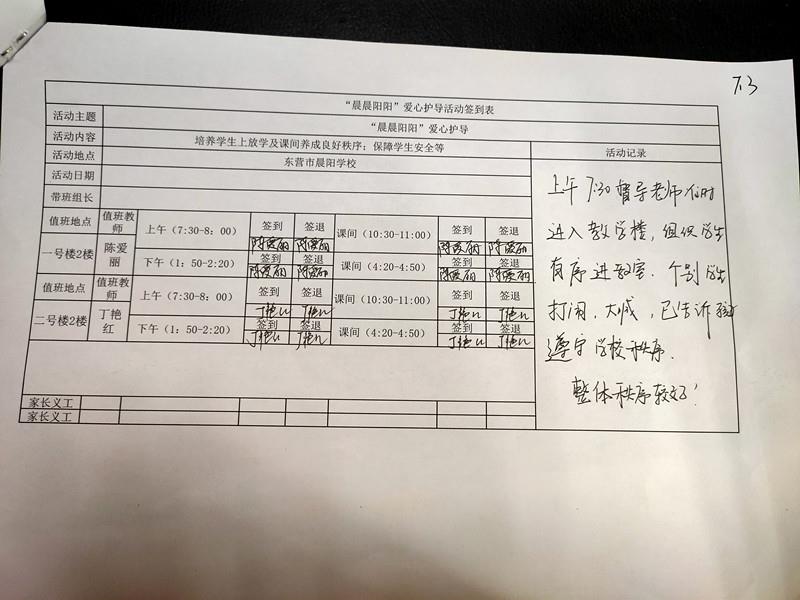 7.3
“晨晨阳阳”爱心护导活动签到表
活动主题 “晨晨阳阳”爱心护导
活动内容 培养学生上放学及课间养成良好秩序；保障学生安全等 活动记录
活动地点 东营市晨阳学校
活动日期
带班组长
值班地点 值班教师 上午（7:30-8：00） 签到 签退 课间（10:30-11:00） 签到 签退
陈爱丽 陈爱丽 陈爱丽 陈爱丽
一号楼2楼 陈爱丽 下午（1：50-2:20） 签到 签退 课间（4:20-4:50） 签到 签退
陈爱丽 陈爱丽 陈爱丽 陈爱丽
值班地点 值班教师 上午（7:30-8：00） 签到 签退 课间（10:30-11:00） 签到 签退
丁艳红 丁艳红 丁艳红 丁艳红
二号楼2楼 丁艳红 下午（1：50-2:20） 签到 签退 课间（4:20-4:50） 签到 签退
丁艳红 丁艳红 丁艳红 丁艳红
家长义工
家长义工
上午7:30督导老师准时
进入教学楼，组织学生
有序进教室.个别学生
打闹、大喊，已告诉
遵守学校秩序.
整体秩序较好！